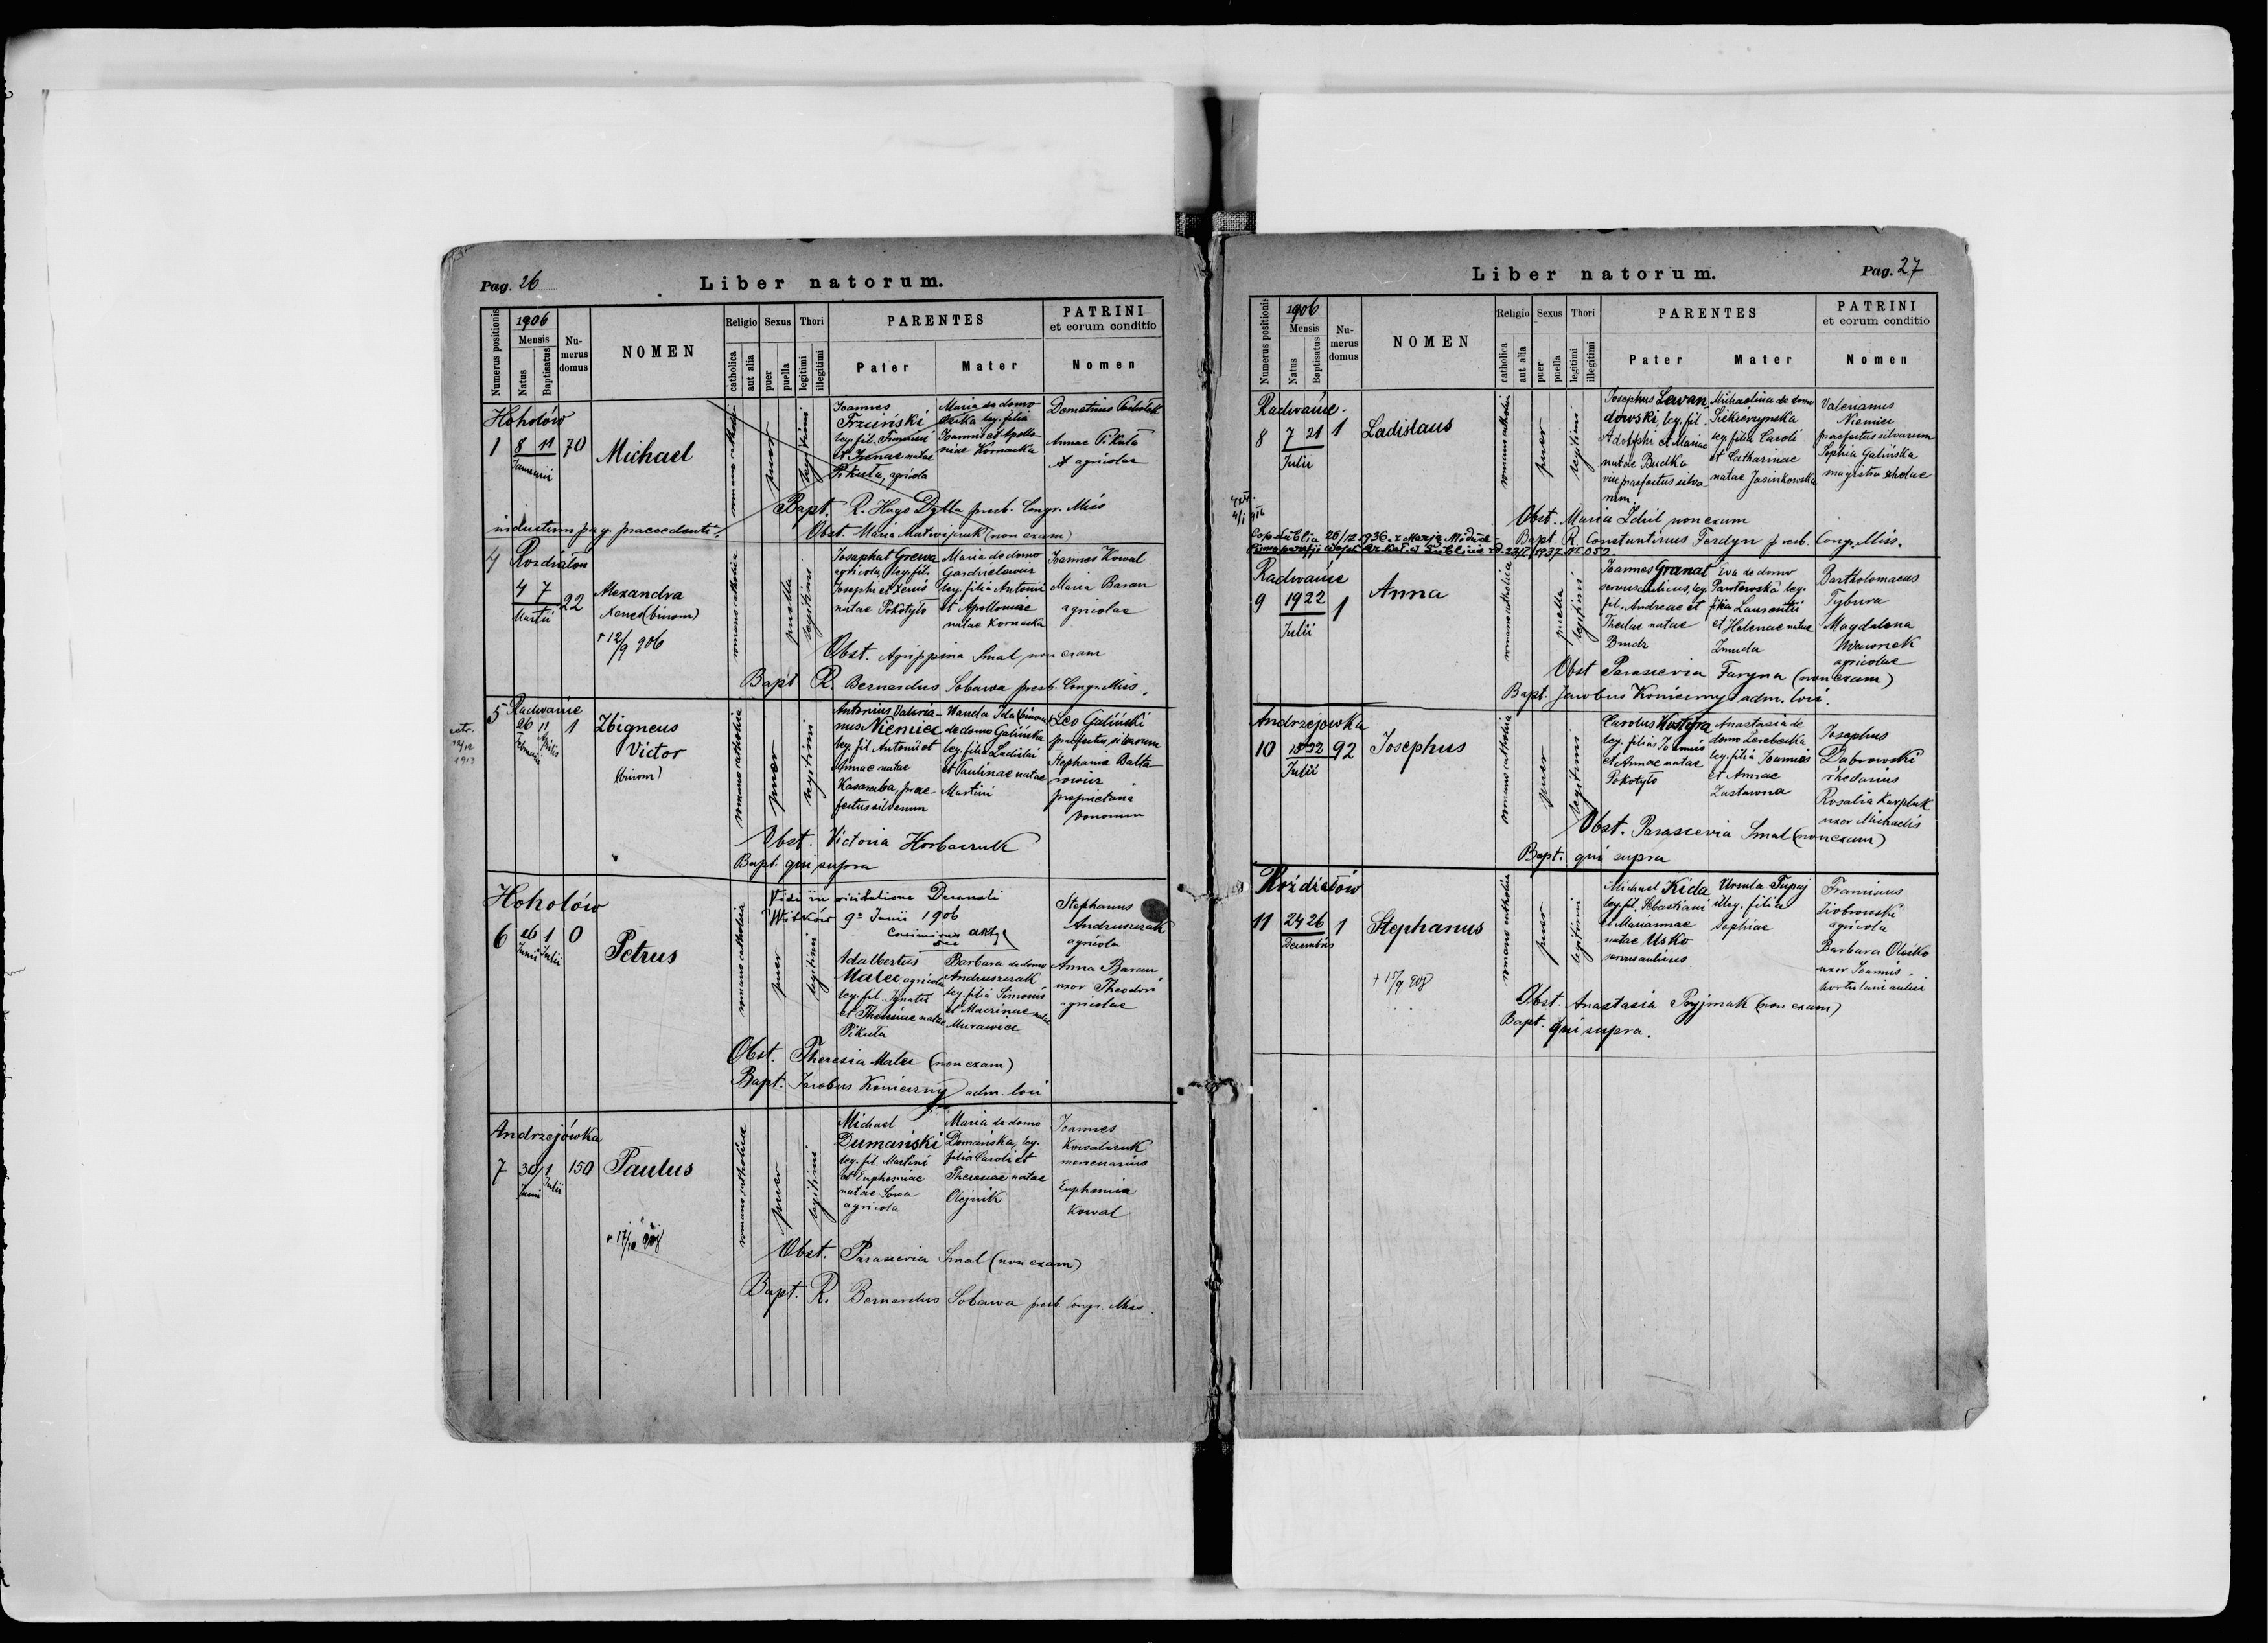 Pag. 26
Liber natorum.
Numerus positionis
1906
Mensis
Natus
Baptisatus
Nu-
merus
domus
NOMEN
Religio
catholica
aut alia
Sexus
puer
puella
Thori
legitimi
illegitimi
PARENTES
Pater
Mater
PATRINI
et eorum conditio
Nomen
Hohołów
1
8 11
Januarii
70
Michael
romano catholica
puer
legitimi
Joannes
leg. fil.
et Irenae natae
Pikuła, agricola
Maria de domo
leg. filia
Joannis et Apollo-
niae Kornacka
Demetrius
Annae Pikuła
agricolae
Bapt. R. Hugo Dylla presb. Congr. Miss
inductum pag. praecedenti
Obst. Maria (non exam)
4
Rozdiałów
4 7
Martii
22
Alexandra
Xenes (binom)
+ 12/9 906
romano catholica
puella
legitimi
Josaphat Grewa
agricola leg. fil.
Josephi et Xeniis
natae Pokotyło
Maria de domo
leg. filia Antonii
et Apolloniae
natae Kornacka
Joannes Kowal
Maria Baran
agricolae
Obst. Agrippina Smal non exam
Bapt R. Bernardus Sobawa presb. Congr. Miss.
extr.
12/12
1913
5
Radwańce
26 11
Februarii Aprilis
1
Zbigneus
Victor
(binom)
romano catholica
puer
legitimi
Antonius Valeria-
nus Niemiec
leg. fil. Antonii et
Annae natae
Kasaraba, prae-
fectus silvarum
Wanda Ida (binom)
de domo Galińska
leg. filia Ladislai
et Paulinae natae
Martini
Leo Galiński
praefectus silvarum
Stephania Balta-
rowicz
proprietaria
bonorum
Obst. Victoria Horbaczuk
Bapt. qui supra
Hohołów
6
26 1
Junii Julii
0
Petrus
romano catholica
puer
legitimi
Vidi in visitatione Decanali
Witków 9a Junii 1906
Adalbertus
Malec agricola
leg. fil. Ignatii
et Theresiae natae
Pikuła
Barbara de domo
Andruszczak
leg. filia Simonis
et Macrinae natae
Murawice
Stephanus
Andruszczak
agricola
Anna Baran
uxor Theodori
agricolae
Obst. Theresia Malec (non exam)
Bapt. Jacobus Konieczny adm. loci
Andrzejówka
7
30 1
Junii Julii
150
Paulus
romano catholica
puer
legitimi
Michael
Dumański
leg. fil. Martini
et Euphemiae
natae Sowa
agricola
Maria de domo
Domańska, leg.
filia Caroli et
Theresiae natae
Olejnik
Joannes
Kowalczuk
mercenarius
Euphemia
Kowal
Obst. Parascevia Smal (non exam)
Bapt. R. Bernardus Sobawa presb. Congr. Miss.
Liber natorum.
Pag. 27
Numerus positionis
1906
Mensis
Natus
Baptisatus
Nu-
merus
domus
NOMEN
Religio
catholica
aut alia
Sexus
puer
puella
Thori
legitimi
illegitimi
PARENTES
Pater
Mater
PATRINI
et eorum conditio
Nomen
Radwańce
8
7 21
Julii
1
Ladislaus
romano catholica
puer
legitimi
Josephus Lewan
dowski, leg. fil.
Adolphi et Mariae
natae Budka
vice praefectus silva
rum.
Michaelina de domo
Siekierzynska
leg. filia Caroli
et Catharinae
natae Jasinkowska
Valerianus
Niemiec
praefectus silvarum
Sophia Galińska
magistra scholae
Obst. Maria Zdril non exam
Bapt. R. Constantinus Ferdyn presb. Cong. Miss.
Radwańce
9
19 22
Julii
1
Anna
romano catholica
puella
legitimi
Joannes Granat
servus aulicus, leg.
fil. Andreae et
Theclae natae
Eva de domo
Pawłowska leg.
filia Laurentii
et Helenae natae
Żmuda
Bartholomaeus
Tybura
Magdalena
agricolae
Obst Parascevia Faryna (non exam)
Bapt. Jacobus Konieczny adm. loci.
Andrzejowka
10
15 22
Julii
92
Josephus
romano catholica
puer
legitimi
Carolus Kostyra
leg. filius Joannis
et Annae natae
Pokotyło
Anastasia de
domo
leg. filia Joannis
et Annae
Zastawna
Josephus
Dąbrowski
rhedarius
Rosalia Karpluk
uxor Michaelis
Obst. Parascevia Smal (non exam)
Bapt. qui supra
Rożdziałów
11
24 26
Decembris
1
Stephanus
+ 15/9 908
romano catholica
puer
legitimi
Michael Kida
leg. fil. Sebastiani
et Mariannae
natae Usko
servus aulicus
Ursula Tupaj
illeg. filia
Sophiae
Franciscus
Ziobrowski
agricola
Barbara Oleśko
uxor Joannis
hortulani aulici
Obst. Anastasia Pryjmak (non exam)
Bapt. qui supra.